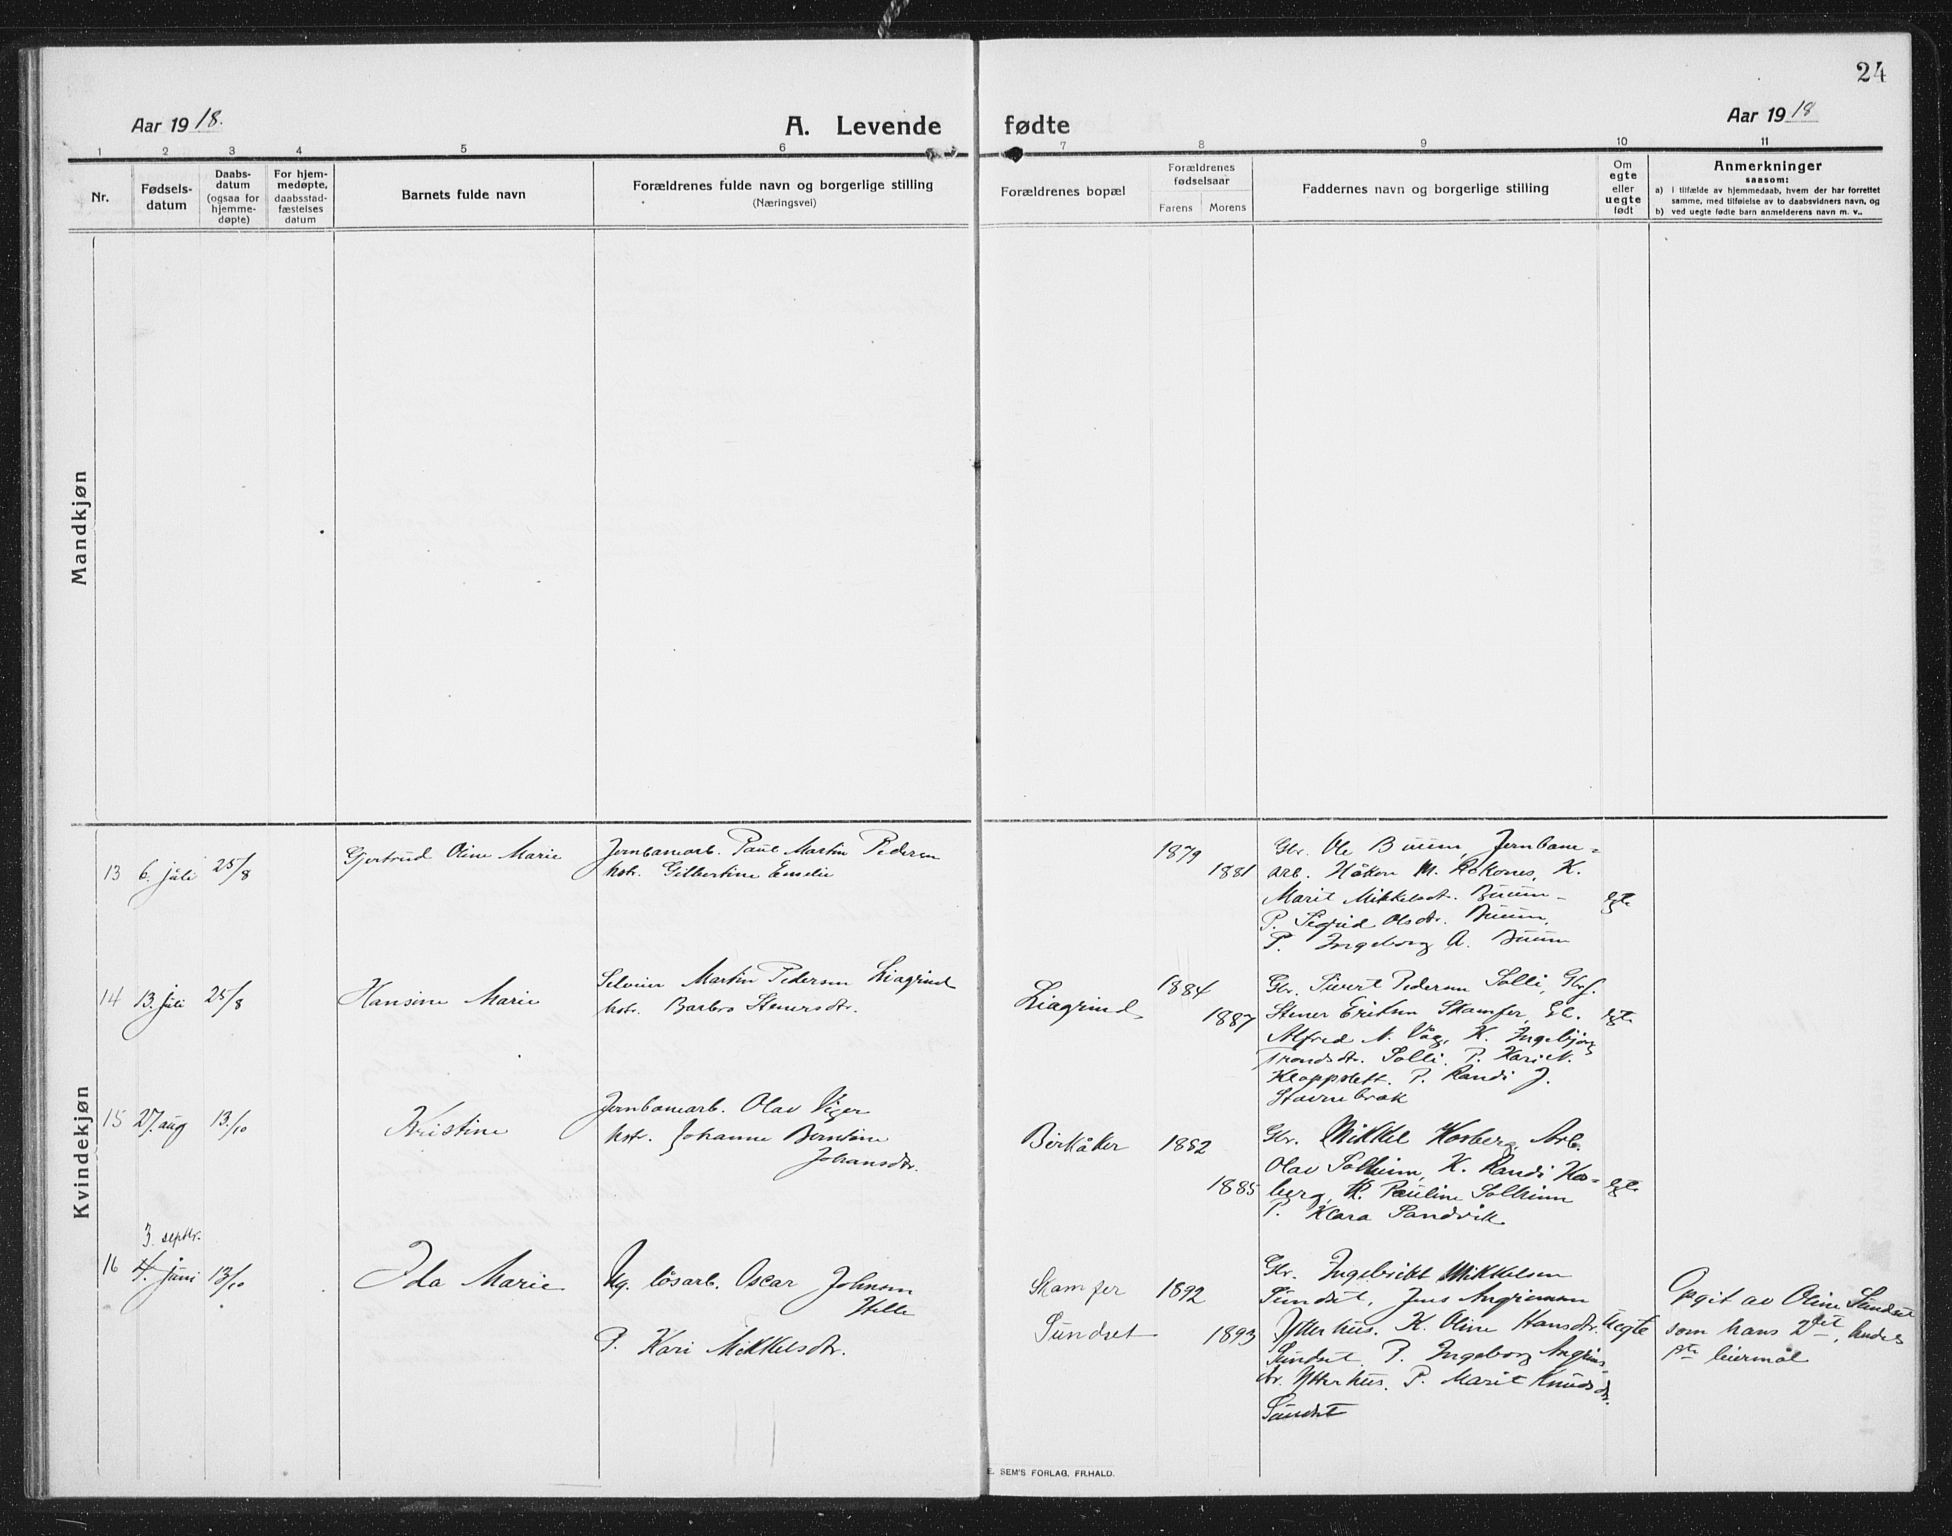 24
Aar 1918.
A. Levende fødte
Aar 1918
1 2 3 4 5 6 7 8 9 10 11
Nr.
Fødsels-
datum
Daabs-
datum
(ogsaa for
hjemme-
døpte)
For hjem-
medøpte,
daabsstad-
fæstelses
datum
Barnets fulde navn
Forældrenes fulde navn og borgerlige stilling
(Næringsvei)
Forældrenes bopæl
Forældrenes
fødselsaar
Farens Morens
Faddernes navn og borgerlige stilling
Om
egte
eller
uegte
født
Anmerkninger
saasom:
a) i tilfælde av hjemmedaab, hvem der har forrettet
samme, med tilføielse av to daabsvidners navn, og
b) ved uegte fødte barn anmelderens navn m. v..
Mandkjøn
Kvindekjøn
13 6. juli 25/8
Gjertrud Oline Marie
Jernbanearb. Paul Martin Pedersen
hstr. Gilbertine Emelie
1879
1881
Gbr. Ole Buum, Jernban=
arb. Håkon M. Rokones, K.
Marit Mikkelsdt. Buum-
P. Sigrid Olsdtr. Buum,
P. Ingeborg A. Buum
egte
14 13. juli 25/8
Hansine Marie
Selveier Martin Pedersen Liagrind
hstr. Barbro Stenersdtr.
Liagrind
1884
1887
Gbr. Sivert Pedersen Solli, Gbrf.
Stener Eriksen Skamfer, E.
Alfred N. Våg, K. Ingebjørg
Trondsdtr. Solli. P. Kari N.
Kloppslett. P. Randi J.
Stavnebrak
egte
15 27. aug 13/10
Kristine
Jernbanearb. Olav Viger
hstr. Johanne Berntine
Johansdtr.
Berkåker
1882
1885
Gbr. Mikkel Hosberg, Arb.
Olav Solheim, K. Randi Hos=
berg, K. Pauline Solheim
P. Klara Sandvik
egte
3. septbr.
16 4. juni 13/10
Ida Marie
Ug. løsarb. Oscar Johnsen
Hille
P. Kari Mikkelsdtr.
Skamfer
Sundset
1892
1893
Gbr. Ingebrikt Mikkelsen
Sundset, Jens Angrimsen
Ytterhus. K. Oline Hansdtr.
Sundset. P. Ingeborg Angrims-
dtr. Ytterhus. P. Marit Knudsdtr.
Sundset
Uegte
Opgit av Oline Sundset
som hans 2det, hendes
1ste leiermål
E. SEM'S FORLAG. FR.HALD.